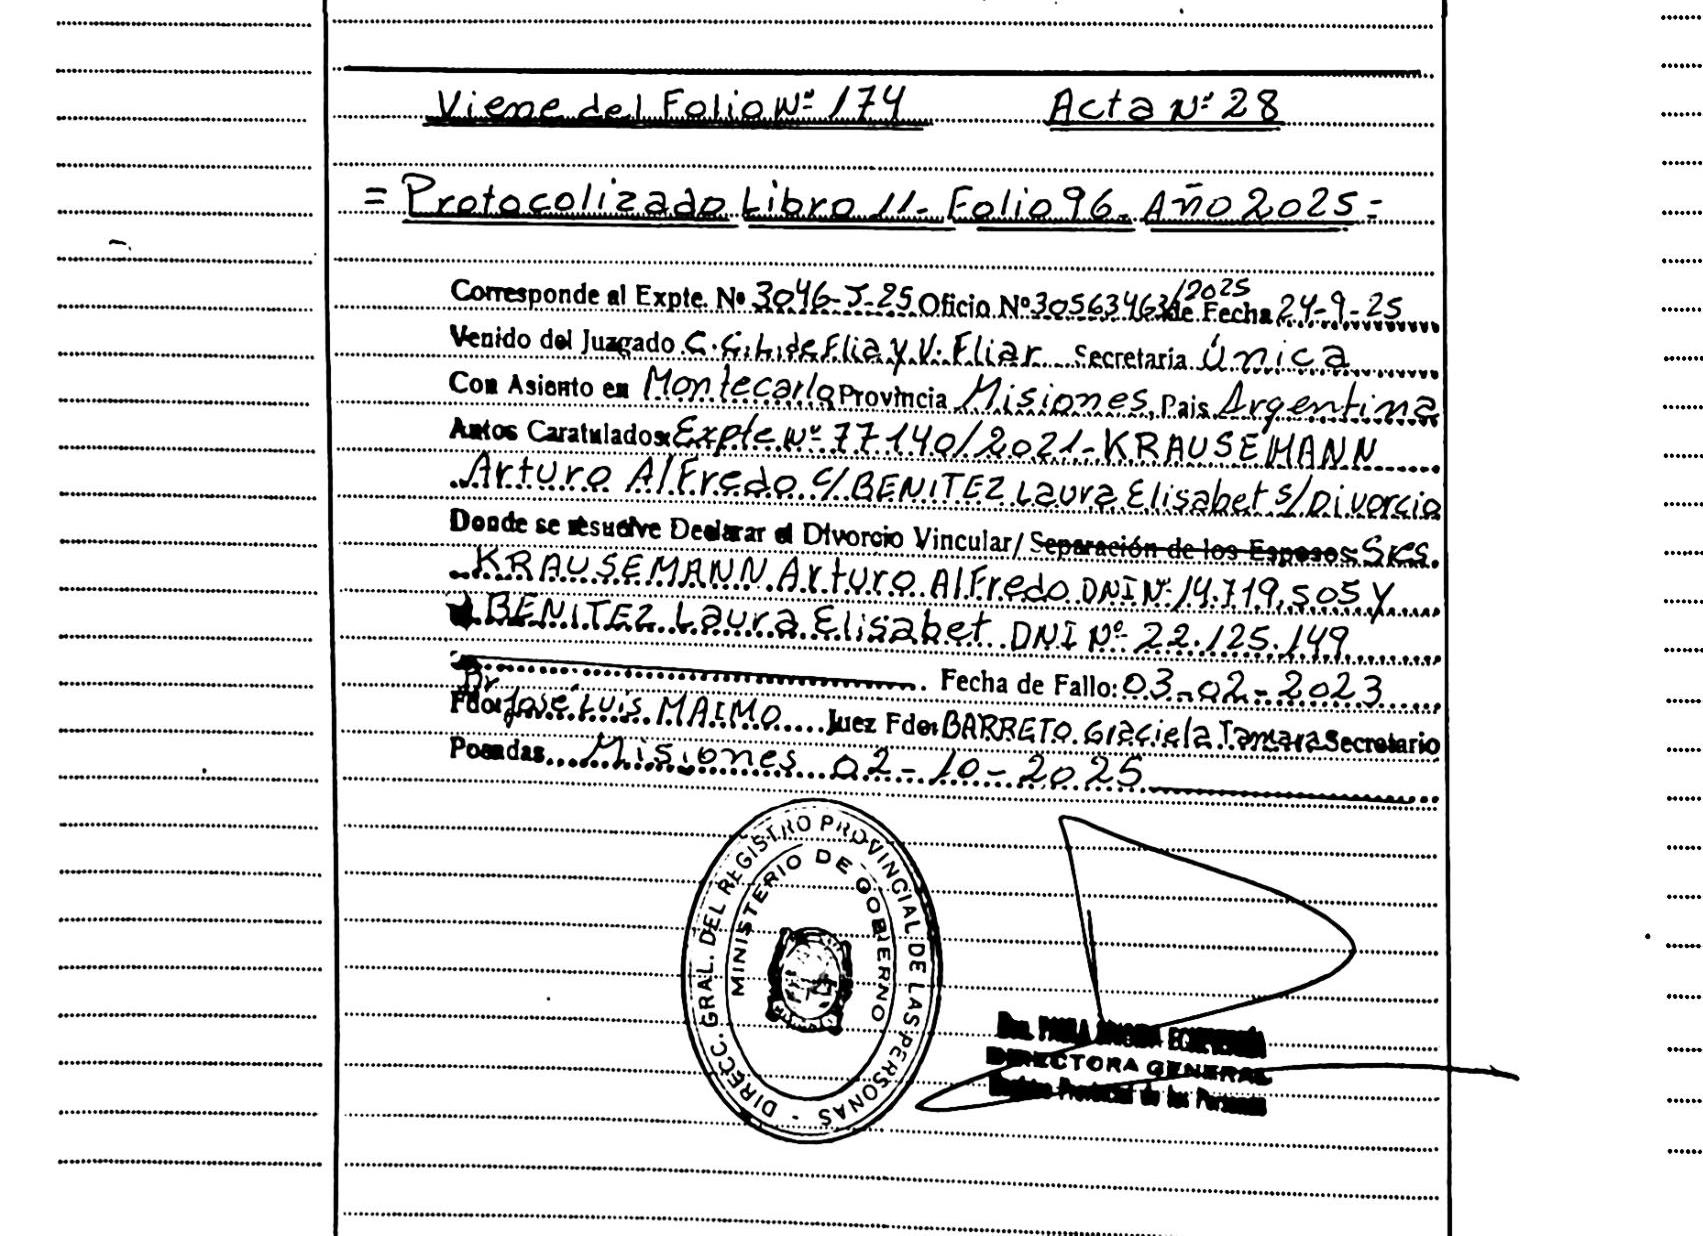 Viene del Folio Nº 174 Acta Nº 28
= Protocolizado Libro 11- Folio 96- Año 2025=
Corresponde al Expte. Nº 3046-J-25 Oficio Nº 30563463/2025 de Fecha 24-9-25
Venido del Juzgado C.C.L. de Flia y V. Fliar Secretaria Única
Con Asiento en Montecarlo Provincia Misiones, Pais Argentina
Autos Caratulados: Expte Nº 77140/2021- KRAUSEMANN
Arturo Alfredo c/ BENITEZ Laura Elisabet s/ Divorcio
Donde se resuelve Declarar el Divorcio Vincular/ Separación de los Esposos: Sres.
KRAUSEMANN Arturo Alfredo DNI Nº 14.719.505 Y
BENITEZ Laura Elisabet DNI Nº 22.125.149
Fecha de Fallo: 03-02-2023
Fdo: Dr José Luis MAIMO Juez Fdo: BARRETO Graciela Tamara Secretario
Posadas Misiones 02-10-2025
DIRECC. GRAL. DEL REGISTRO PROVINCIAL DE LAS PERSONAS -
MINISTERIO DE GOBIERNO
Dra. PAULA
DIRECTORA GENERAL
Registro Provincial de las Personas